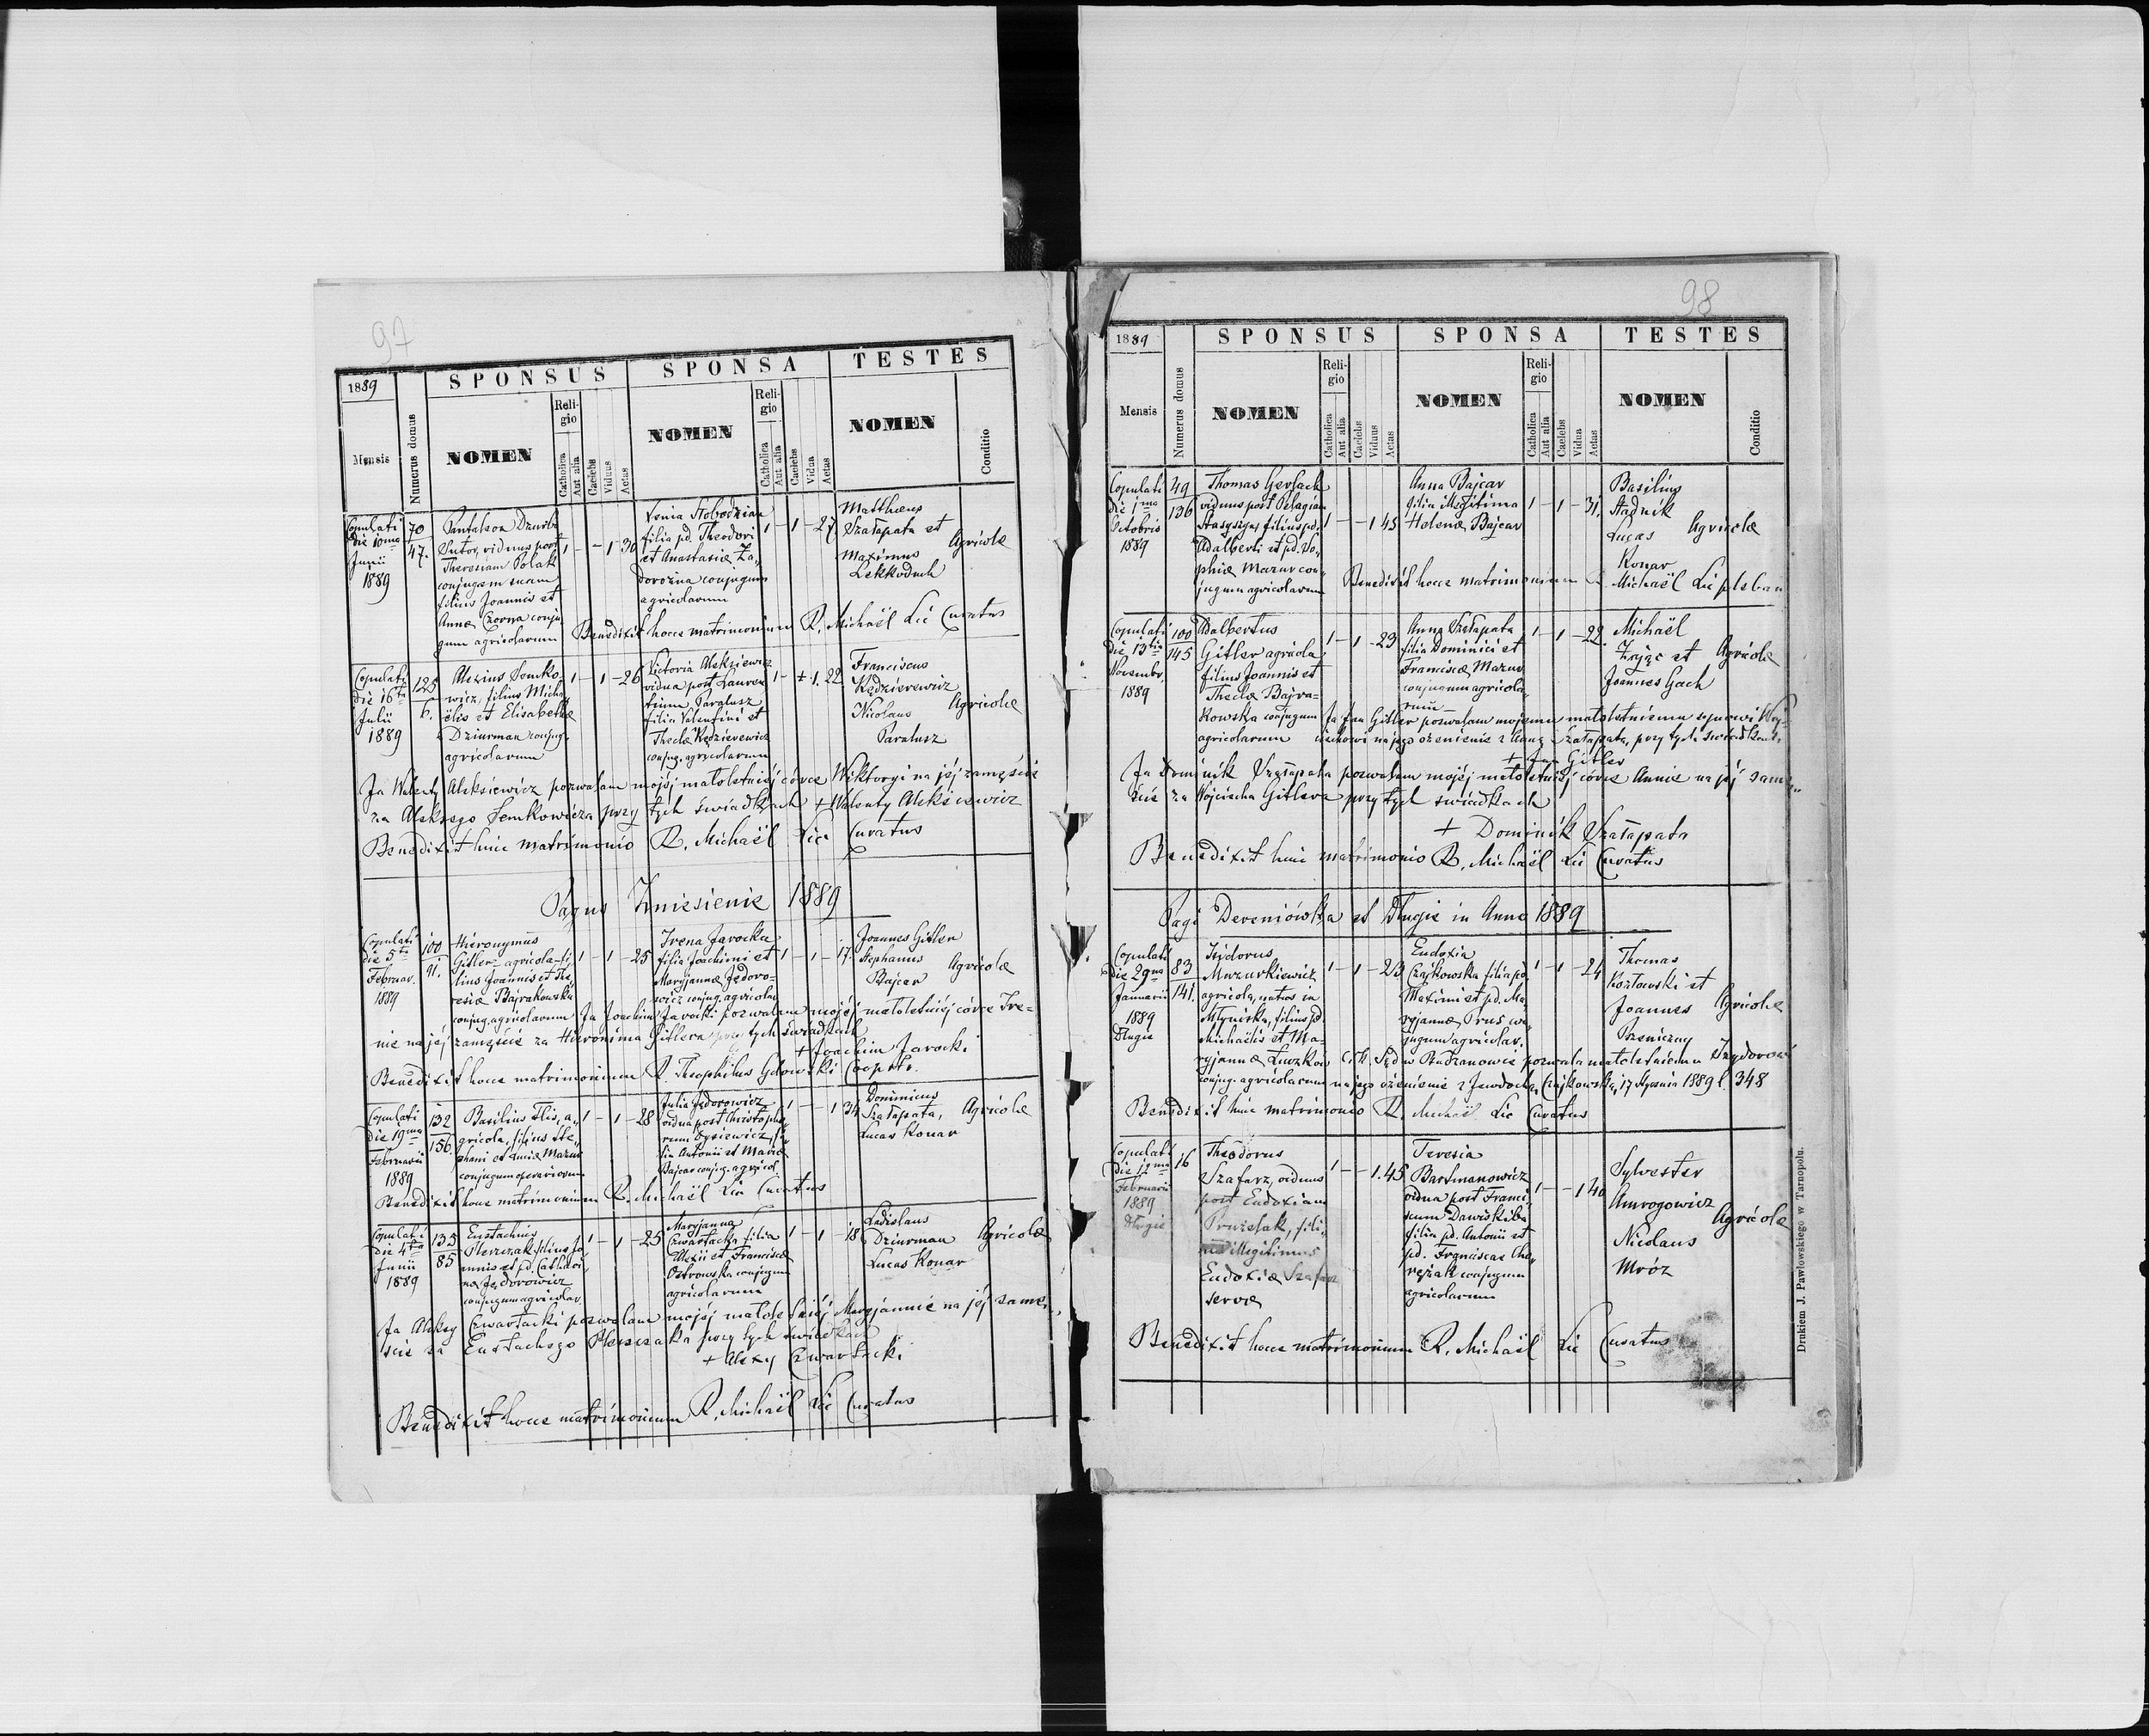 97
1889
SPONSUS
SPONSA
TESTES
Mensis
Numerus domus
NOMEN
Religio
Catholica
Aut alia
Caelebs
Viduus
Aetas
NOMEN
Religio
Catholica
Aut alia
Caelebs
Vidua
Aetas
NOMEN
Conditio
Copulati
die 10ma
Junii
1889
70
47.
Pantaleon Dziurba
Sutor, viduus post
Theresiam Polak
conjugem suam
filius Joannis et
Annae Czorna conju
gum agricolarum
1 – – 1 30
Xenia Slobodzian
filia pd. Theodori
et Anastasiae Za
dorożna conjugum
agricolarum
1 – 1 – 27.
Matthaeus
Szałapata et
Maximus
Agricolae
Benedixit hocce matrimonium R. Michaël Lic Curatus
Copulati
die 16ta
Julii
1889
125
6.
Alexius Semko
wicz, filius Micha
elis et Elisabethae
Dziurman conjug.
agricolarum
1 – 1 – 26
Victoria Aleksiewicz
vidua post Lauren
tium Paralusz
filia Valentini et
Theclae Kędzierewicz
conjug. agricolarum
1 – + 1. 22
Franciscus
Kędzierewicz
Nicolaus
Paralusz
Agricolae
Ja Walenty Aleksiewicz pozwalam mojéj małoletniéj córce Wiktoryi na jéj zamęście
za Aleksego Semkowicza przy tych świadkach + Walenty Aleksiewicz
Benedixit huic matrimonio R. Michaël Lic Curatus
Pagus Zniesienie 1889
Copulati
die 5ta
Februar.
1889
100
91.
Hieronymus
Gitler agricola fi
lius Joannis et The
resiae Bajrakowska
conjug. agricolarum
1 – 1 – 25
Irena Jarocka
filia Joachimi et
Maryjannae Fedoro=
wicz conjug. agricolar
1 – 1 – 17.
Joannes Gitler
Stephanus
Bajcar
Agricolae
Ja Joachim Jarocki pozwalam mojéj małoletniéj córce Ire=
nie na jéj zamęście za Hieronima Gitlera przy tych świadkach
+ Joachim Jarocki
Benedixit hocce matrimonium R. Theophilus Cooptr.
Copulati
die 19ma
Februarii
1889
132
156.
Basilius Flis, a,,
gricola, filius Ste,,
phani et Luciae Mazur
conjugum operariorum
1 – 1 – 28
Julia Fedorowicz
vidua post Christopho
rum Łysiewicz, fi
lia Antonii et Mariae
Bajcar conjug. agricol.
1 – – 1 34
Dominicus
Szałapata,
Lucas Konar
Agricolae
Benedixit hocce matrimonium R. Michaël Lic Curatus
Copulati
die 4ta
Junii
1889
135
85
Eustachius
Pleszczak filius Jo
annis et pd. Cathari,,
nae Fedorowicz
conjugum agricolar.
1 – 1 – 25
Maryjanna
Czwartacka filia
Alexii et Franciscae
Ostrowska conjugum
agricolarum
1 – 1 – 18
Ladislaus
Dziurman
Lucas Konar
Agricolae
Ja Aleksy Czwartacki pozwalam mojéj małoletniéj Maryjannie na jéj zamę,,
ście za Eustachego Pleszczaka przy tych świadkach
+ Alexy Czwartacki
Benedixit hocce matrimonium R. Michaël Lic Curatus
98
1889
SPONSUS
SPONSA
TESTES
Mensis
Numerus domus
NOMEN
Religio
Catholica
Aut alia
Caelebs
Viduus
Aetas
NOMEN
Religio
Catholica
Aut alia
Caelebs
Vidua
Aetas
NOMEN
Conditio
Copulati
die 1ma
Octobris
1889
49
136
Thomas Gerlach
viduus post Pelagiam
filius pd.
Adalberti et pd. So,,
phiae Mazur con,,
jugum agricolarum
1 – – 1 45
Anna Bajcar
filia illegitima
Helenae Bajcar
1 – 1 – 31.
Basilius
Stadnik
Lucas
Konar
Agricolae
Benedixit hocce matrimonium R. Michaël Lic pleban
Copulati
die 13tia
Novembr.
1889
100
145
Adalbertus
Gitler agricola
filius Joannis et
Theclae Bajra=
kowska conjugum
agricolarum
1 – 1 – 23
Anna Szałapata
filia Dominici et
Franciscae Mazur
conjugum agricola,,
rum
1 – 1 – 22
Michaël
Zając et
Joannes Gach
Agricolae
Ja Jan Gitler pozwalam mojemu małoletniemu synowi Woj=
ciechowi na jego ożenienie z Anną Szałapata, przy tych świadkach
+ Jan Gitler
Ja Dominik Szałapata pozwalam mojéj małoletniéj córce Annie na jéj zamę,,
ście za Wojciecha Gitlera przy tych świadkach
+ Dominik Szałapata
Benedixit huic matrimonio R. Michaël Lic Curatus
Pagi Dereniówka et Długie in Anno 1889
Copulati
die 29na
Januarii
1889
Długie
83
141.
Isidorus
Mazurkiewicz
agricola, natus in
Młyniska, filius pd.
Michaëlis et Ma=
ryjannae Łuczków
conjug. agricolarum
1 – 1 – 23
Eudoxia
Czajkowska filia pd.
Maximi et pd. Ma,,
ryjannae Prus con
jugum agricolar.
1 – 1 – 24
Thomas
Kozłowski et
Joannes
Pszeniczny
Agricolae
C. k. Sąd w Budzanowie pozwala małoletniemu Izydorowi
na jego ożenienie z Jewdochą Czajkowską, 17 Stycznia 1889 l. 348
Benedixit huic matrimonio R. Michaël Lic Curatus
Copulati
die 12ma
Februarii
1889
Długie
16
Theodorus
Szafarz, viduus
post Eudoxiam
Pruzelak, fili,,
us illegitimus
Eudoxiae Szafarz
servae
1 – – 1. 45
Teresia
Bartmanowicz
vidua post Franci
scum Dawiskiba
filia pd. Antonii et
pd. Franciscae Cha,,
rężak conjugum
agricolarum
1 – – 1 40
Sylvester
Amrogowicz
Nicolaus
Mróz
Agricolae
Benedixit hocce matrimonium R. Michaël Lic Curatus
Drukiem J. Pawłowskiego w Tarnopolu.